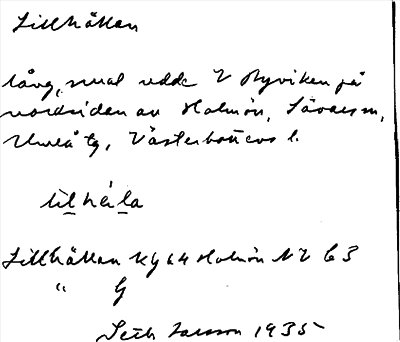 Lillhällan
låg, smal udde V Hyviken på
nordsidan av Holmön, Sävars sn,
Umeå tg, Västerbottens l.
lilhéla
Lillhällan Kg 64 Holmön NV C3
" G
Seth Larsson 1935